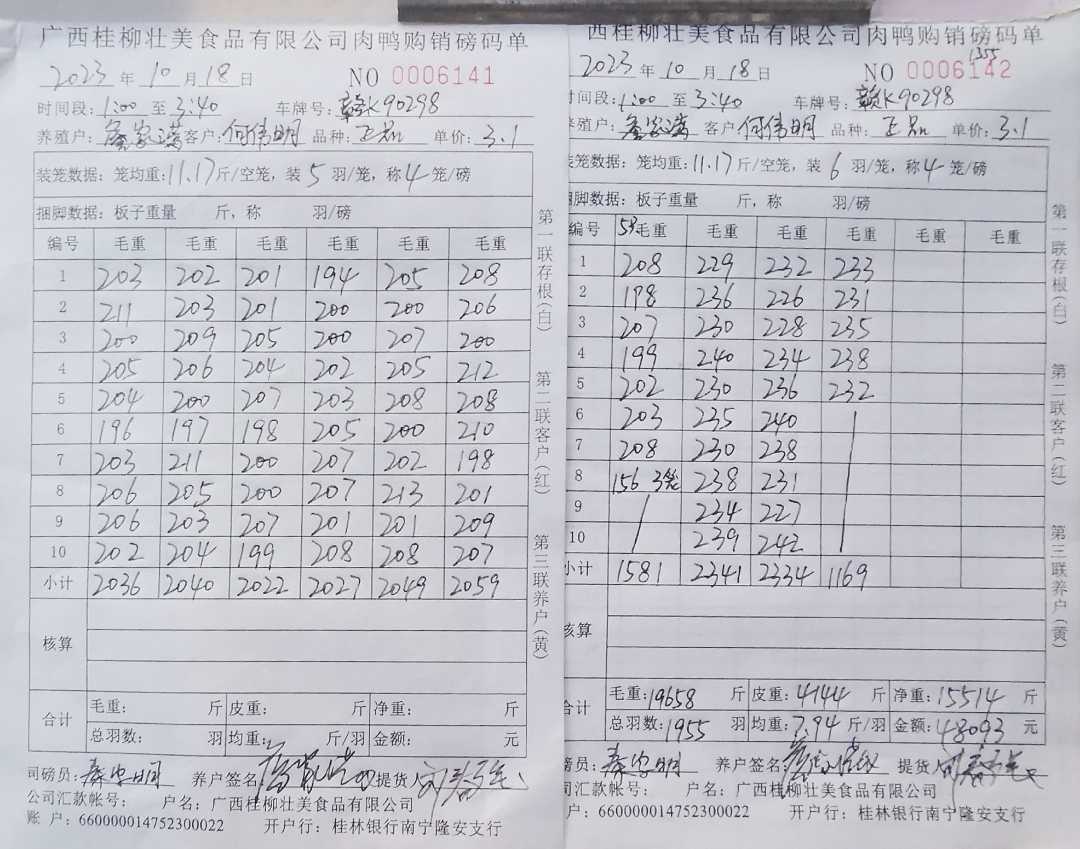 广西桂柳壮美食品有限公司肉鸭购销磅码单
2023 年 10 月 18 日 NO 0006141
时间段: 1:00 至 3:40 车牌号: 赣K90298
养殖户: 客户: 何伟明 品种: 单价: 3.1
装笼数据: 笼均重: 11.17 斤/空笼, 装 5 羽/笼, 称 4 笼/磅
捆脚数据: 板子重量 斤, 称 羽/磅
编号 毛重 毛重 毛重 毛重 毛重 毛重
1 203 202 201 194 205 208
2 211 203 201 200 200 206
3 200 209 205 200 207 200
4 205 206 204 202 205 212
5 204 200 207 203 208 208
6 196 197 198 205 200 210
7 203 211 200 207 202 198
8 206 205 200 207 213 201
9 206 203 207 201 201 209
10 202 204 199 208 208 207
小计 2036 2040 2022 2027 2049 2059
核算
合计 毛重: 斤 皮重: 斤 净重: 斤
总羽数: 羽 均重: 斤/羽 金额: 元
司磅员: 养户签名: 提货人
公司汇款帐号: 户名: 广西桂柳壮美食品有限公司
账 户: 660000014752300022 开户行: 桂林银行南宁隆安支行
第一联存根(白)
第二联客户(红)
第三联养户(黄)
西桂柳壮美食品有限公司肉鸭购销磅码单
1355
2023 年 10 月 18 日 NO 0006142
时间段: 1:00 至 3:40 车牌号: 赣K90298
养殖户: 客户: 何伟明 品种: 单价: 3.1
装笼数据: 笼均重: 11.17 斤/空笼, 装 6 羽/笼, 称 4 笼/磅
捆脚数据: 板子重量 斤, 称 羽/磅
编号 毛重 毛重 毛重 毛重 毛重 毛重
1 208 229 232 233
2 198 236 226 231
3 207 230 228 235
4 199 240 234 238
5 202 230 236 232
6 203 235 240
7 208 230 238
8 156 3笼 238 231
9 234 227
10 239 242
小计 1581 2341 2334 1169
核算
合计 毛重: 19658 斤 皮重: 4144 斤 净重: 15514 斤
总羽数: 1955 羽 均重: 7.94 斤/羽 金额: 48093 元
磅员: 养户签名: 提货人
司汇款帐号: 户名: 广西桂柳壮美食品有限公司
户: 660000014752300022 开户行: 桂林银行南宁隆安支行
第一联存根(白)
第二联客户(红)
第三联养户(黄)